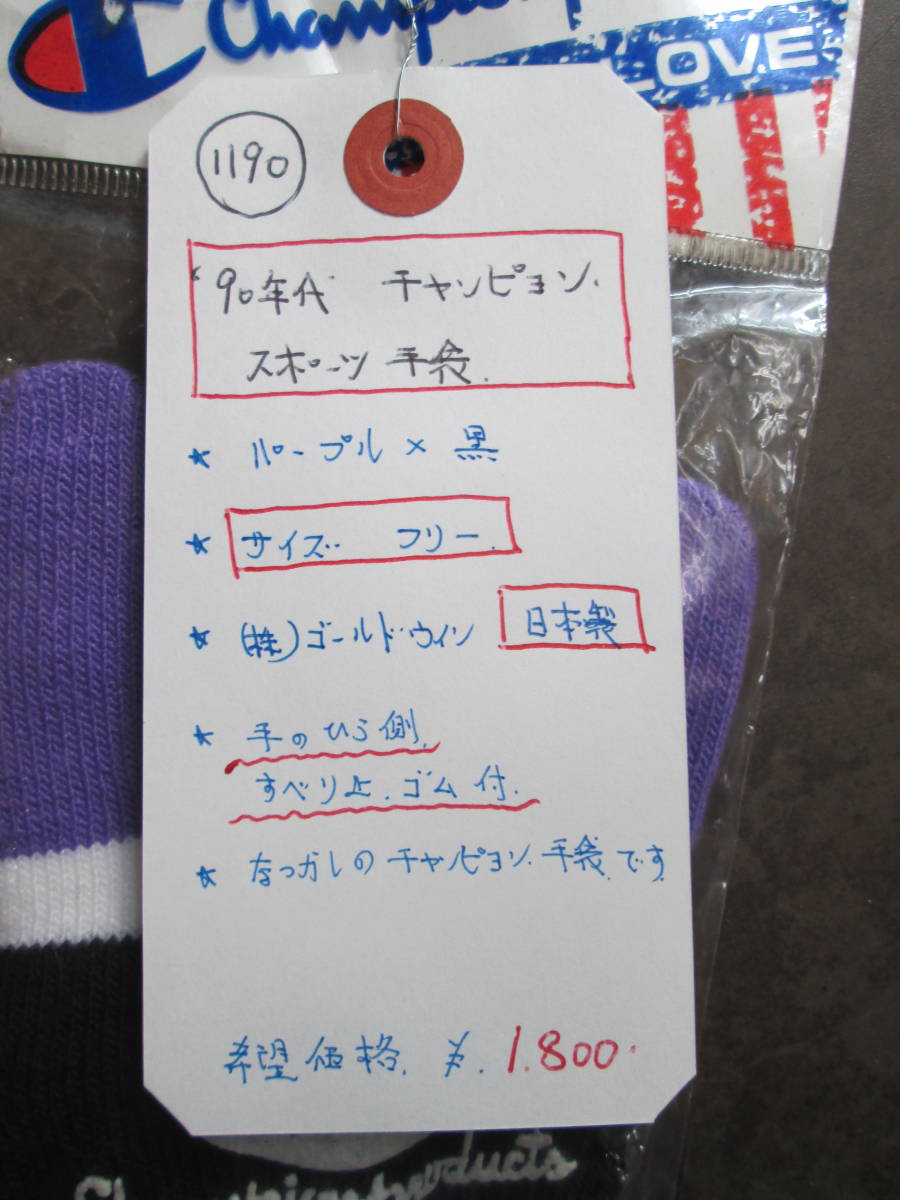 Champion
LOVE
1190
'90年代 チャンピョン.
スポーツ 手袋.
★ パープル × 黒
★ サイズ フリー.
★ (株)ゴールドウィン 日本製
★ 手のひら側.
すべり止.ゴム付.
★ なつかしの チャンピョン.手袋.です
希望価格. ¥. 1.800.
products